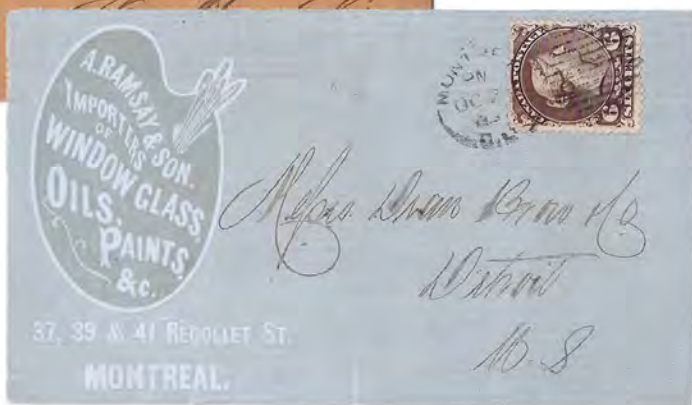 A. RAMSAY & SON.
IMPORTERS
OF
WINDOW GLASS,
OILS,
PAINTS,
&c.
37, 39 & 41 RECOLLET ST.
MONTREAL.
CANADA POSTAGE
6 6
SIX CENTS
Messrs Dean Brow & Co
Detroit
U. S